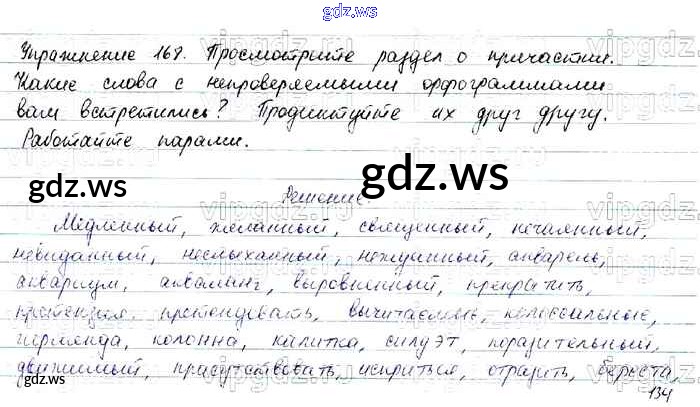 gdz.ws
Упражнение 168. Просмотрите раздел о причастии.
Какие слова с непроверяемыми орфограммами
вам встретились? Продиктуйте их друг другу.
Работайте парами.
gdz.ws
gdz.ws
Решение.
Медленный, желанный, священный, нечаянный,
невиданный, неслыханный, нежданный, акварель,
аквариум, акваланг, выровненный, превратить,
претензия, претендовать, вычитаемые, колоссальные,
гирлянда, колонна, калитка, силуэт, поразительный,
движимый, присутствовать, испариться, отразить, береста,
gdz.ws
134